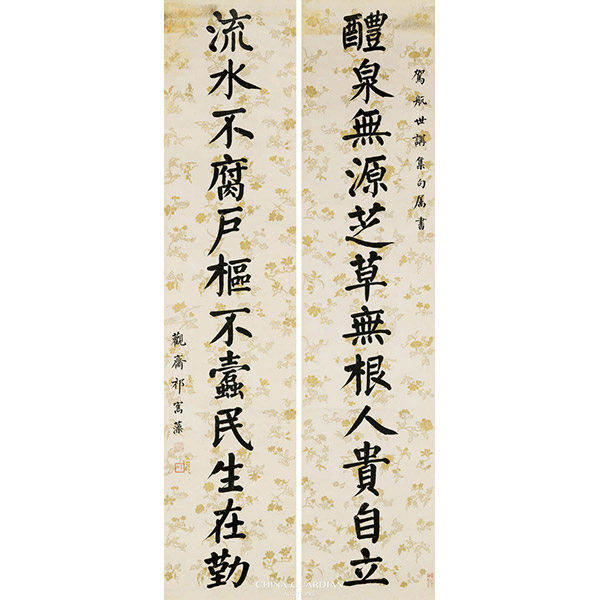 駕航世講集句屬書
醴泉無源芝草無根人貴自立
流水不腐戶樞不蠹民生在勤
觀齋祁寯藻
CHINA GUARDIAN